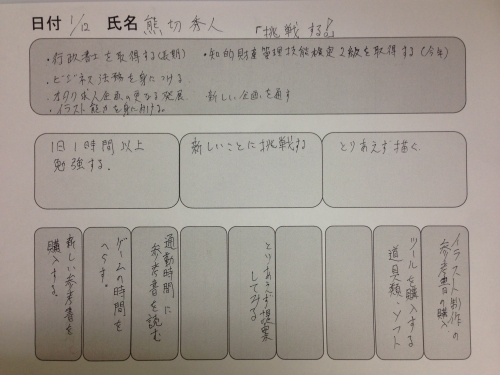 日付 1/12 氏名 熊切秀人 「挑戦する」
・行政書士を取得する(長期) ・知的財産管理技能検定2級を取得する(今年)
・ビジネス法務を身につける
・オタク求人企画の更なる発展 新しい企画を通す
・イラスト能力を身に付ける。
1日1時間以上
勉強する。
新しいことに挑戦する
とりあえず描く
イラスト制作の
参考書の購入
ツールを購入する
道具類・ソフト
とりあえず提案
してみる
通勤時間に
参考書を読む
ゲームの時間を
へらす。
新しい参考書を
購入する。